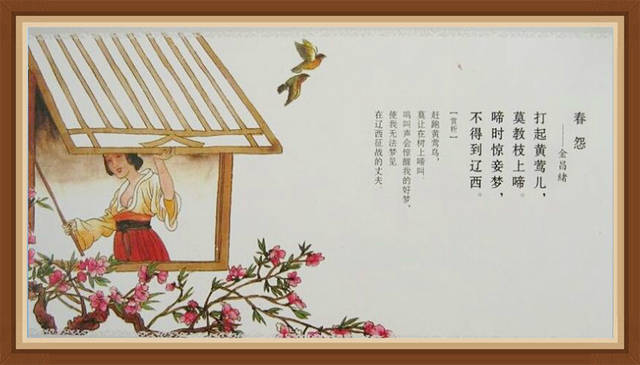 春怨
——金昌绪
打起黄莺儿，
莫教枝上啼。
啼时惊妾梦，
不得到辽西。
【赏析】
赶跑黄莺鸟，
莫让在树上啼叫.
鸣叫声会惊醒我的好梦，
使我无法梦见
在辽西征战的丈夫.